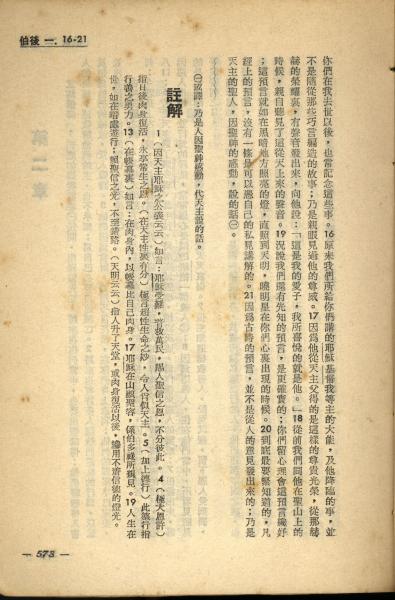 伯後 一. 16-21
你們在我去世以後，也常記念這些事。16原來我們所給你們講的耶穌基督我等主的大能，及他降臨的事，並
不是隨從那些巧言編造的故事；乃是親眼見過他的尊威。17因爲他從天主父得的是這樣的尊貴光榮，從那赫
赫的榮耀裏，有聲音發出來，向他說：「這是我的愛子，我所喜悅的就是他。」18從前我們同他在聖山上的
時候，親自聽見了這從天上來的聲音。19況說我們還有先知的預言，是更確實的；你們留心理會這預言纔好
；這預言就如在黑暗地方照亮的燈，直照到天明，曉明星在你們心裏出現的時候。20到底最要緊知道的，凡
經上的預言，沒有一條是可以憑自己的私見講解的。21因爲古時的預言，並不是從人的意見發出來的；乃是
天主的聖人，因聖神的感動，說的話㊀。
㊀或譯：乃是人因聖神感動，代天主說的話。
註解
1（因天主耶穌之公義云云）如言：耶穌受難，普救萬民，賜人聖信之恩，不分彼此。4（極大恩許）
指日後肉身復活，永享常生之恩。（在天主性裏有分）極言超性生命之妙，令人肖似天主。5（加上德行）此德行指
行義之勇力。13（在帳幕裏）如言：在肉身內，以帳幕比自己肉身。17耶穌在山顯聖容，係伯多祿所親見。19人生在
世，如在暗處遊行；賴聖信之光，不至錯路。（天明云云）指人升了天堂，或肉身復活以後，纔用不着信德的燈光。
— 573 —